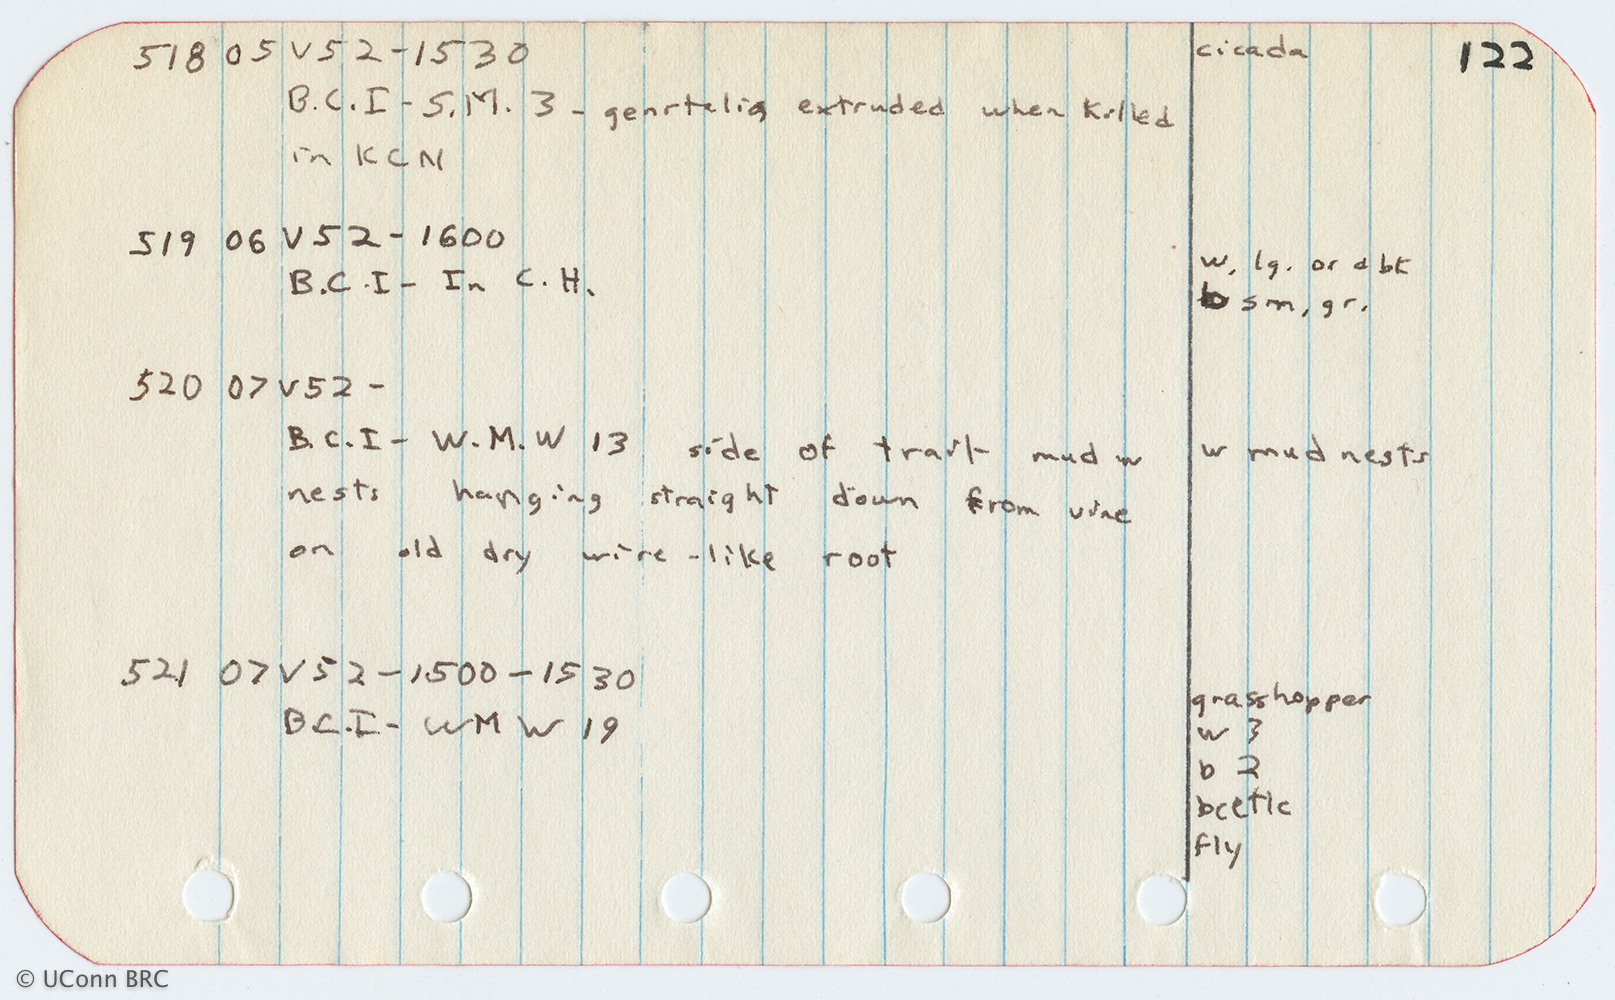 122
518 05 V 52 - 1530
cicada
B.C.I - S.M. 3 - genitalia extruded when killed
in KCN
519 06 V 52 - 1600
B.C.I - In C.H.
w, lg. or abt
b sm, gr.
520 07 V 52 -
B.C.I - W.M.W 13 side of trail - mud w
w mud nests
nests hanging straight down from vine
on old dry wire-like root
521 07 V 52 - 1500 - 1530
B.C.I - WMW 19
grasshopper
w 3
b 2
beetle
fly
© UConn BRC